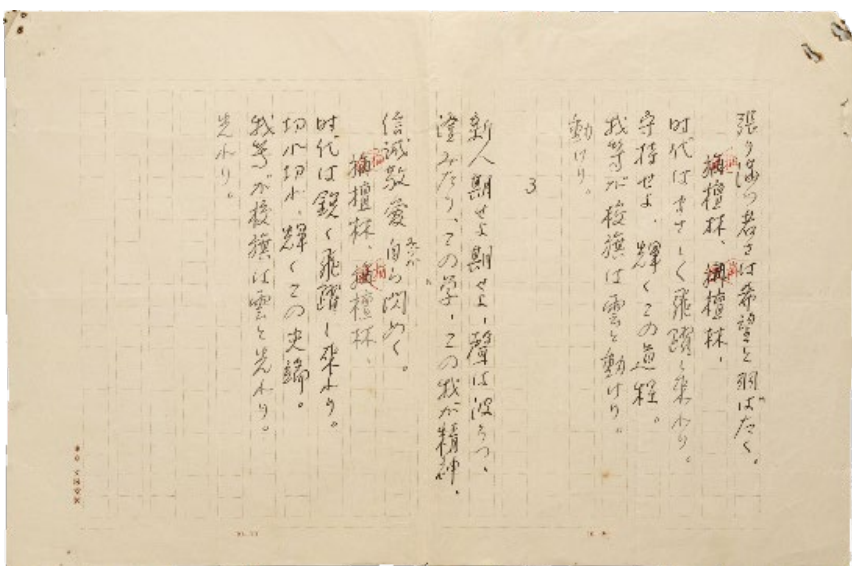 張り満つ若さは希望と羽ばたく。
栴檀林、栴檀林、
時代はまさしく飛躍し来れり。
守持せよ、輝くこの道程。
我等が校旗は雲と動けり。
動けり。
3
新人期せよ期せよ、聲は波うつ、
澄みたり、この学、この我が精神、
信誠敬愛自ら閃めく。
栴檀林、栴檀林、
時代は鋭く飛躍し来れり。
切れ切れ、輝くこの尖端。
我等が校旗は雲と光れり。
光れり。